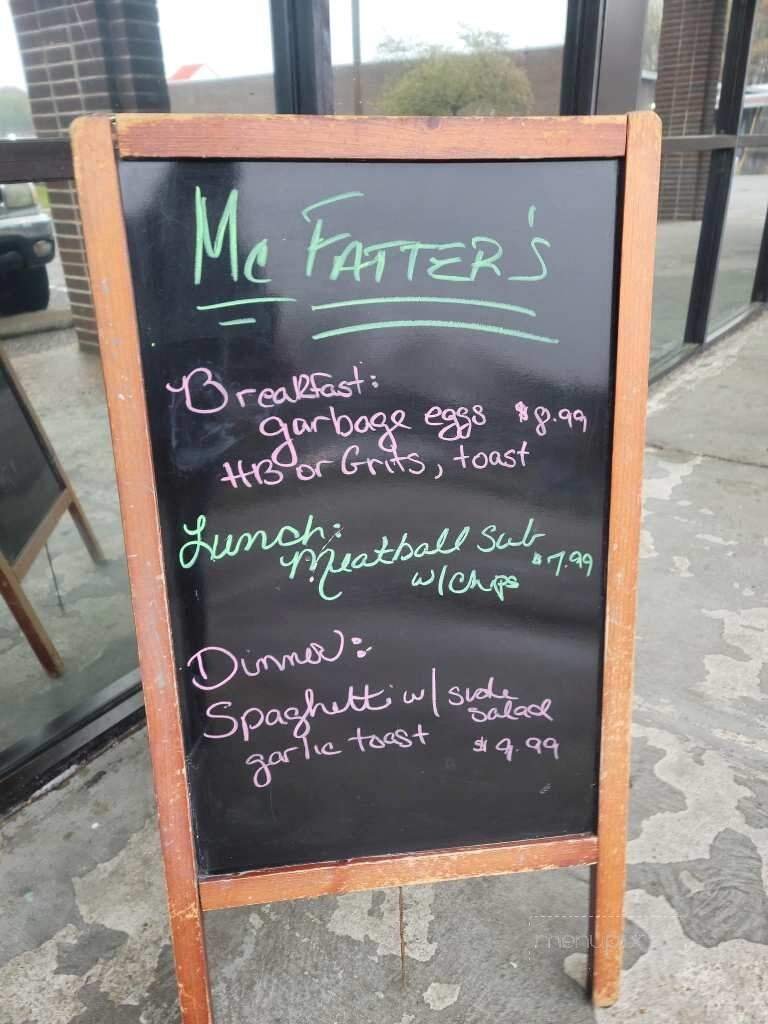 Mc FATTER'S
Breakfast:
garbage eggs $8.99
HB or Grits, toast
Lunch:
Meatball Sub $7.99
w/chps
Dinner:
Spaghetti w/ side
salad
garlic toast $9.99